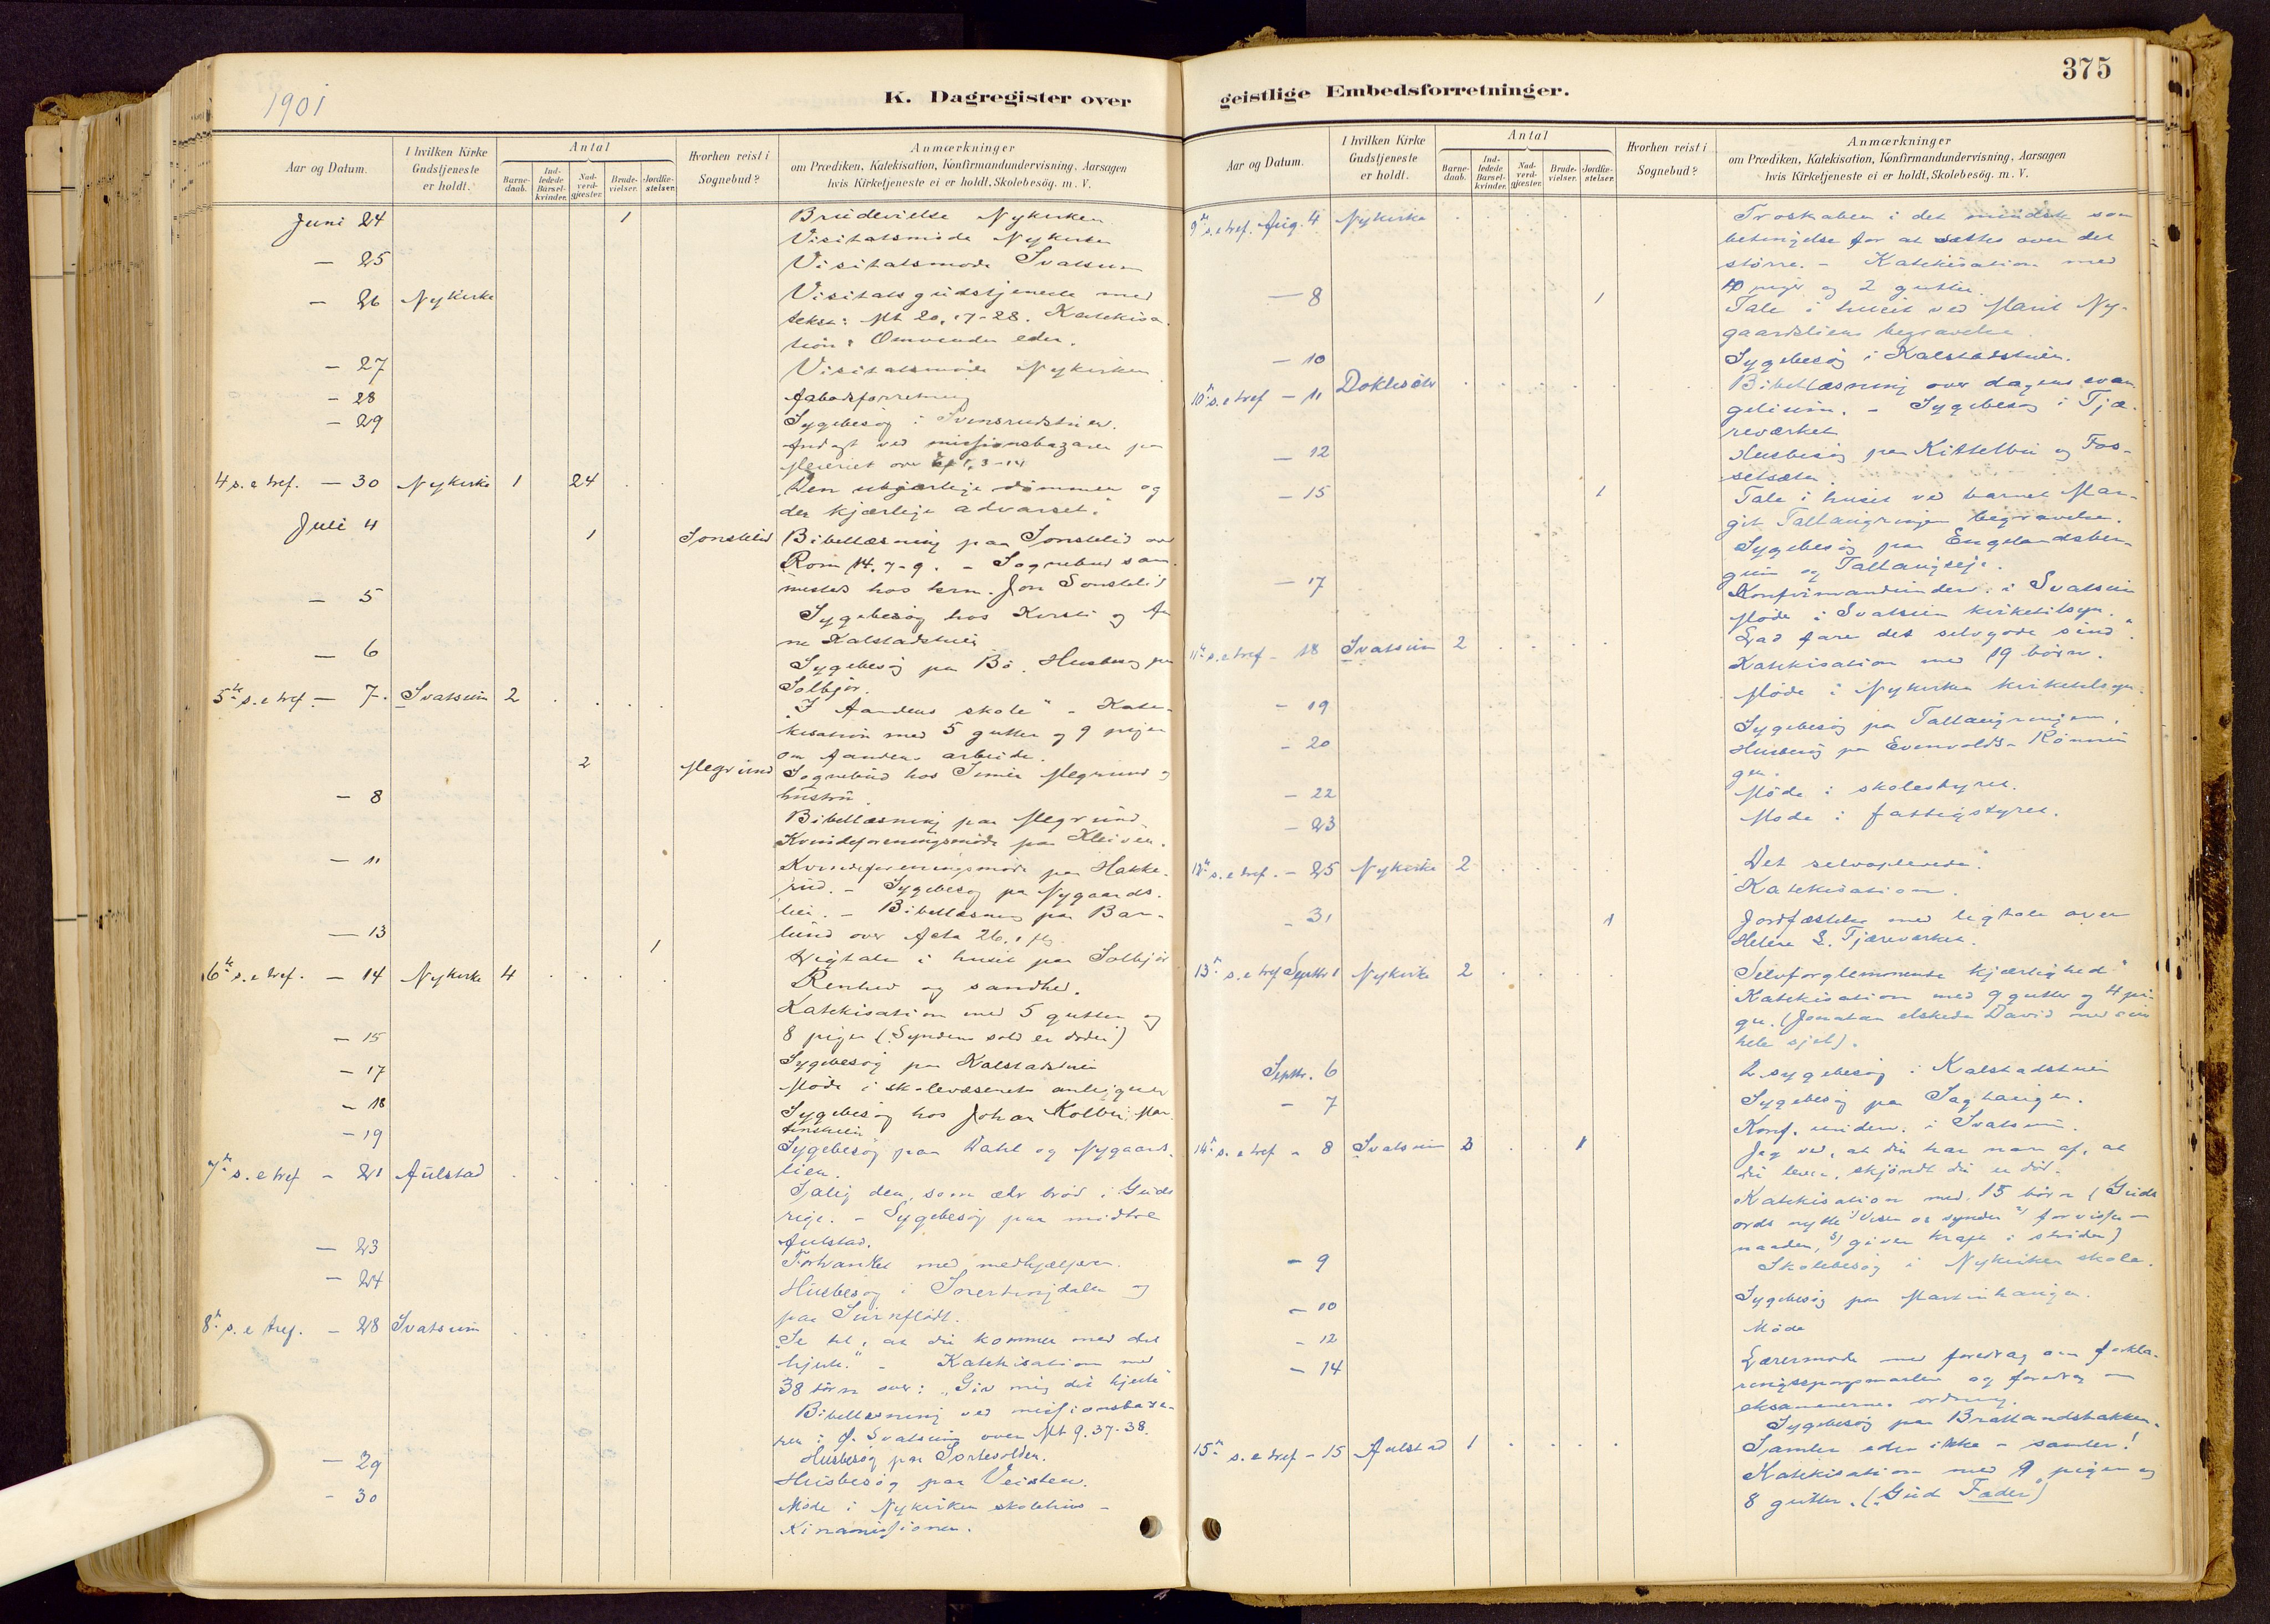 1901
K. Dagregister over
Aar og Datum.
I hvilken Kirke Gudstjeneste er holdt.
Antal
Barne-daab.
Ind-ledede Barsel-kvinder.
Nad-verd-gjester.
Brude-vielser.
Jordfæ-stelser.
Hvorhen reist i Sognebud?
Anmærkninger
om Prædiken, Katekisation, Konfirmandundervisning, Aarsagen
hvis Kirketjeneste ei er holdt, Skolebesög. m. V.
Juni 24 1 Brudevielse Nykirken
Visitatsmøde Nykirken
— 25 Visitatsmøde Svatsum
— 26 Nykirke Visitatsgudstjeneste med
tekst: Mt 20, 17-28. Katekisa
tion: Omvender eder.
— 27 Visitatsmøde Nykirken
— 28 Aabodsforretning
— 29 Sygebesøg i
Andagt ved missionsbazaren paa
Meieriet over Ef 1, 3-14
4 s. e tref. — 30 Nykirke 1 24 "Den ubgjærlige dømmer og
den kjærlige advarsel."
Juli 4 1 Sonstelid Bibellæsning paa Sonstelid over
Rom 14. 7-9. - Sognebud sam
mested hos krm. Jon Sonstelid
— 5 Sygebesøg hos Kersti og An
ne Kalstadstuen
— 6 Sygebesøg paa Bø. Husbesøg paa
Solbjør.
5te s. e tref. — 7. Svatsum 2 "I Aandens skole" - Kate-
kisation med 5 gutter og 9 piger
om Aandens arbeide.
2 Megrund Sognebud hos Simen Megrund og
hustru.
— 8 Bibellæsning paa Megrund
Kvindeforeningsmøde paa Kleiven.
— 11 Kvindeforeningsmøde paa Hakke-
rud. - Sygebesøg paa Nygaards-
lien. - Bibellæsning paa Bar-
lund over Acta 26, 1 flg.
— 13 1 Ligtale i huset paa Solbjør
6te s. e tref. — 14 Nykirke 4 Renhed og sandhed.
Katekisation med 5 gutter og
8 piger (Syndens sold er døden)
— 15 Sygebesøg paa Kalstadstuen
— 17 Møde i skolevæsenets anliggender
— 18 Sygebesøg hos Johan Kolbu, Mar
tinstuen
— 19 Sygebesøg paa Dahl og Nygaards-
lien.
7de s. e tref — 21 Aulstad Salig den, som æder brød i Guds
rige. - Sygebesøg paa midtre
Aulstad.
— 23 Forhandlet med medhjælperen.
— 24 Husbesøg i Snertingdalen og
paa Surnflødt.
8de s. e tref. — 28 Svatsum "Se til, at du kommer med dit
hjerte." - Katekisation med
38 børn over: "Giv mig dit hjerte"
Bibellæsning ved missionsbaza-
ren i Ø. Svatsum over Mt 9. 37-38.
— 29 Husbesøg paa Sortevolden.
Husbesøg paa Veisten.
— 30 Møde i Nykirken skolehus -
Kinamissionen.
375
geistlige Embedsforretninger.
Aar og Datum.
I hvilken Kirke Gudstjeneste er holdt.
Antal
Barne-daab.
Ind-ledede Barsel-kvinder.
Nad-verd-gjester.
Brude-vielser.
Jordfæ-stelser.
Hvorhen reist i Sognebud?
Anmærkninger
om Prædiken, Katekisation, Konfirmandundervisning, Aarsagen
hvis Kirketjeneste ei er holdt, Skolebesög. m. V.
9de s. e tref. Aug. 4 Nykirke Troskaben i det mindste som
betingelse for at sættes over det
større. - Katekisation med
10 piger og 2 gutter.
— 8 1 Tale i huset ved Marit Ny-
gaardsliens begravelse.
— 10 Sygebesøg i Kalstadstuen.
10de s. e tref — 11 Doklesæter Bibellæsning over dagens evan
gelium. - Sygebesøg i Tjæ-
reværket
— 12 Husbesøg paa Kittelbu og Fos-
setsæter.
— 15 1 Tale i huset ved barnet Mar-
git begravelse.
Sygebesøg paa Engelandsber-
gum og
— 17 Konfirmandunderv. i Svatsum
Møde i Svatsum kirketilsyn.
11te s. e tref — 18 Svatsum 2 "Lad fare det selvgode sind".
Katekisation med 19 børn.
— 19 Møde i Nykirken kirketilsyn.
Sygebesøg paa
— 20 Husbesøg paa Evenvolds- Rønnin
gen.
— 22 Møde i skolestyret.
— 23 Møde i fattigstyret.
12te s. e tref. — 25 Nykirke 2 "Det selvoplevede."
Katekisation.
— 31 1 Jordfæstelse med ligtale over
Helene L. Tjæreværket.
13de s. e tref Septbr 1 Nykirke 2 "Selvforglemmende kjærlighed"
Katekisation med 9 gutter og 4 pi-
ger. (Jonatan elskede David med sin
hele sjel).
Septbr. 6 2 sygebesøg i Kalstadstuen
— 7 Sygebesøg paa Saghaugen.
Konf. underv. i Svatsum.
14de s. e tref — 8 Svatsum 3 1 Jeg ved, at du har navn af, at
du lever, skjøndt du er død.
Katekisation med 15 børn (Guds
ords nytte 1) viser os synden 2) forvisser om
naaden, 3) giver kraft i striden)
— 9 Skolebesøg i Nykirken skole.
— 10 Sygebesøg paa Martinhaugen.
— 12 Møde
— 14 Lærermøde med foredrag om forkla-
ringsspørgsmaalet og foredrag om
eksamenernes ordning.
Sygebesøg paa Bratlandsbakken.
15de s. e tref — 15 Aulstad 1 Samler eder ikke - samler!
Katekisation med 9 piger og
8 gutter. (Gud Fader)